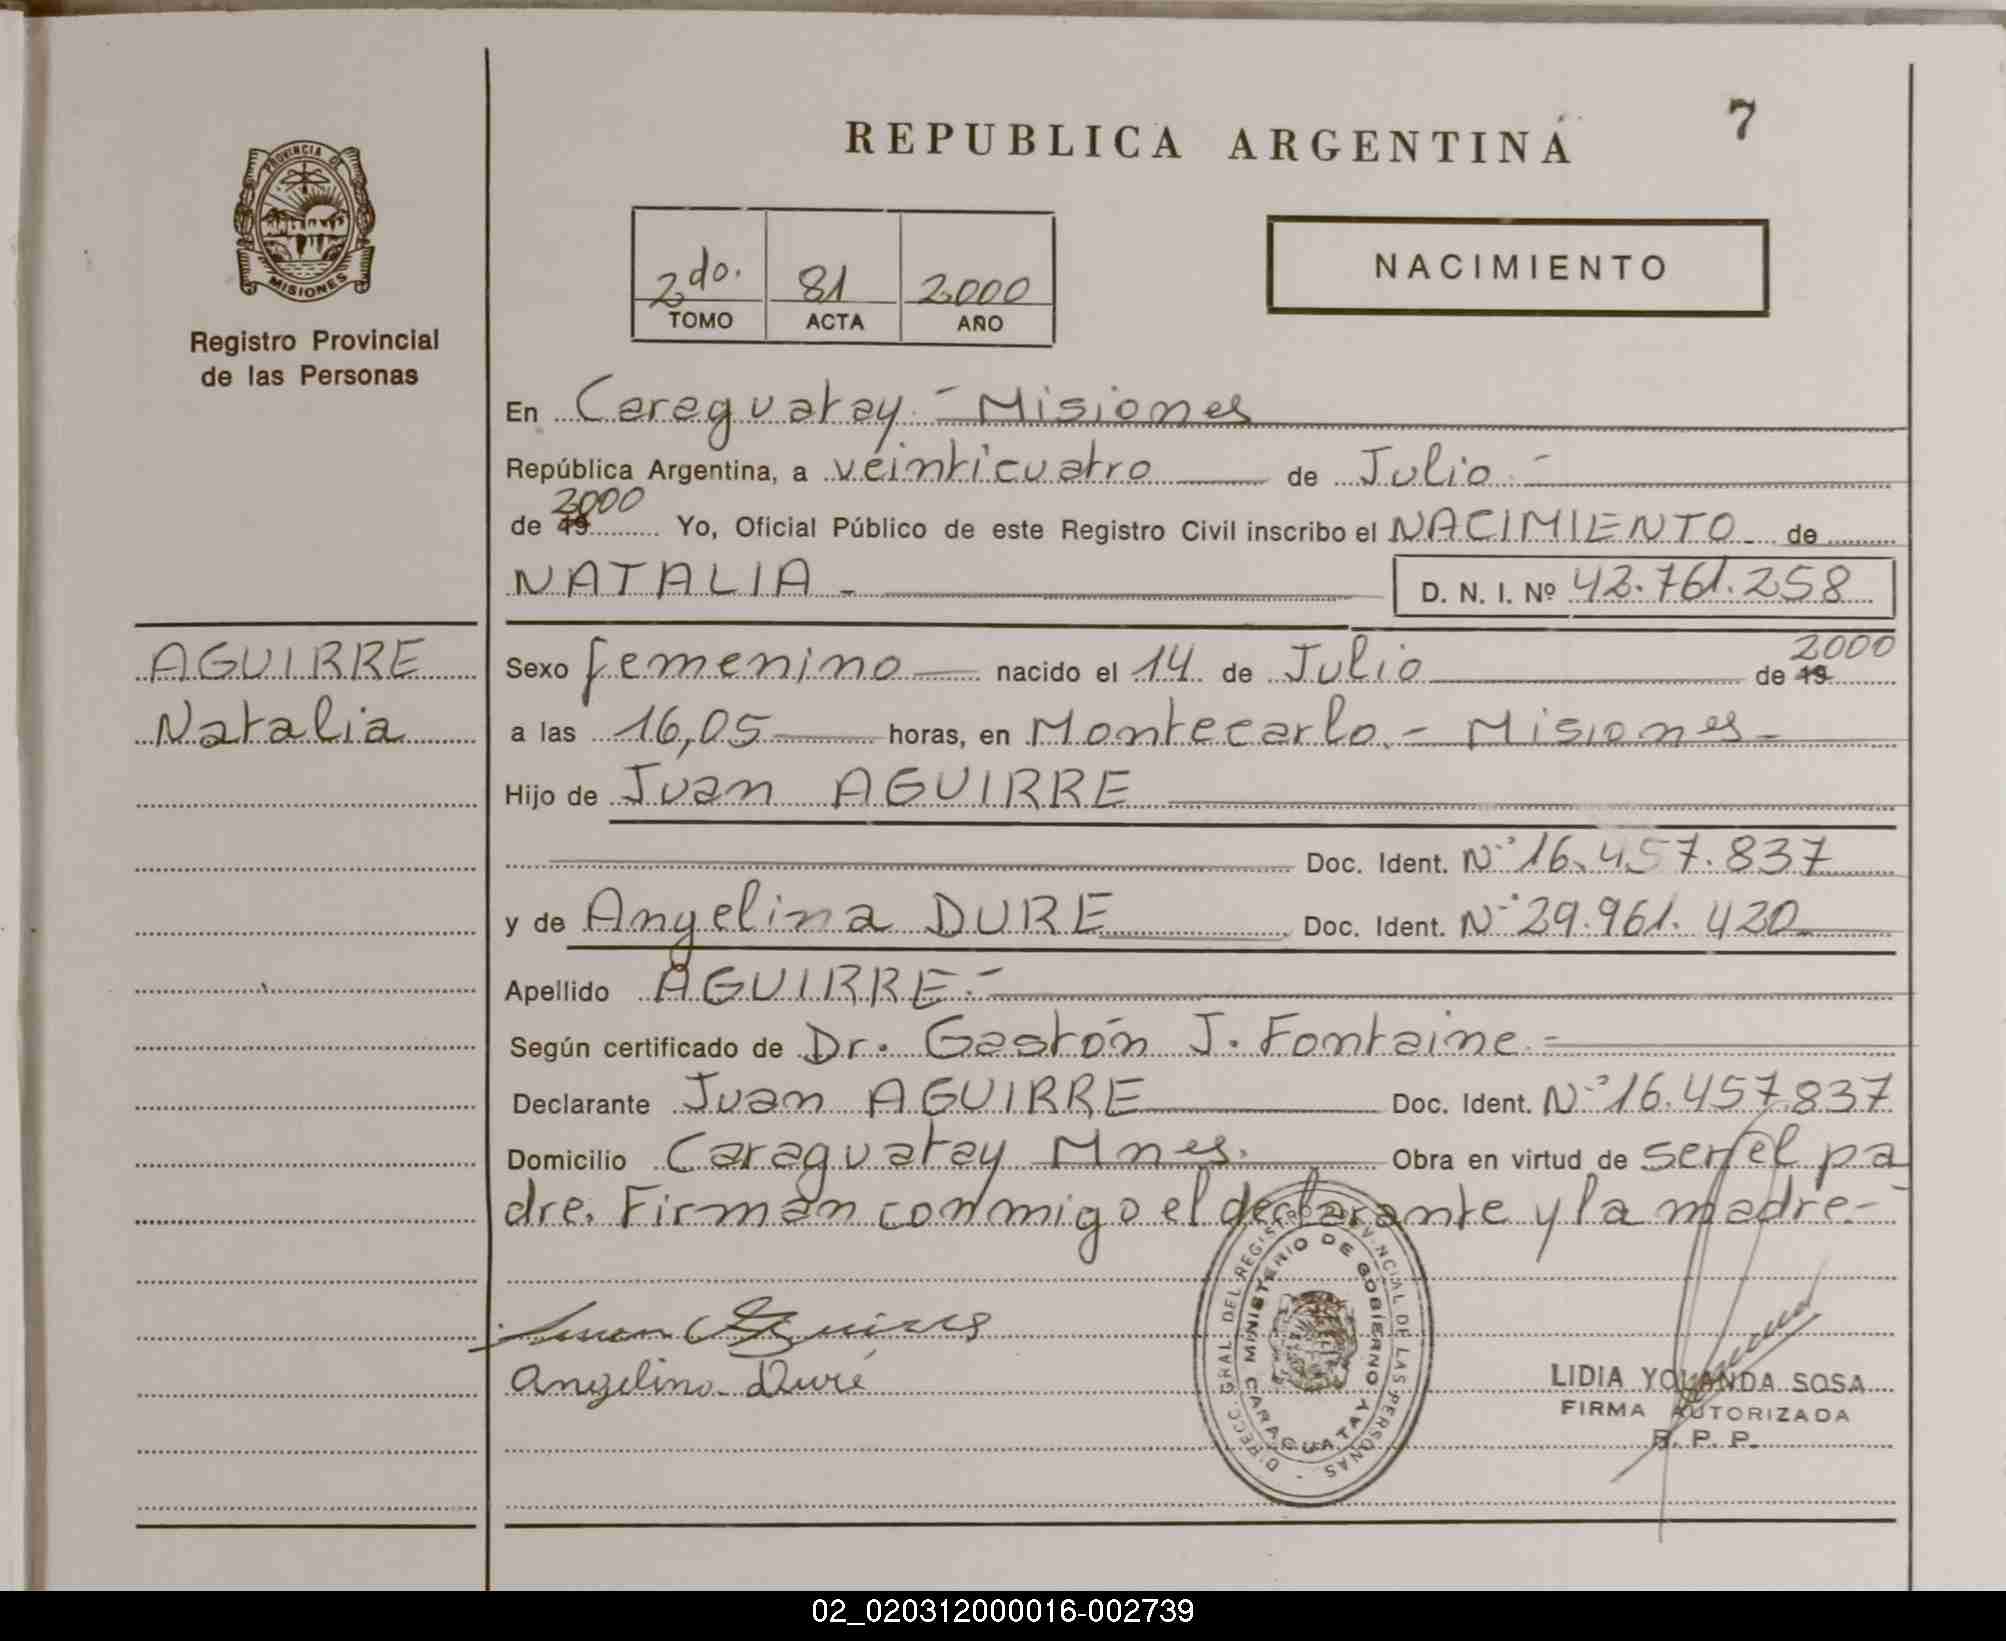 REPUBLICA ARGENTINA
7
PROVINCIA DE
MISIONES
Registro Provincial
de las Personas
2do. 81 2000
TOMO ACTA AÑO
NACIMIENTO
En Caraguatay - Misiones
República Argentina, a veinticuatro de Julio.-
de 19 2000 Yo, Oficial Público de este Registro Civil inscribo el NACIMIENTO de
NATALIA.- D. N. I. Nº 42.761.258
AGUIRRE
Natalia
Sexo femenino nacido el 14 de Julio de 19 2000
a las 16,05 horas, en Montecarlo.- Misiones-
Hijo de Juan AGUIRRE
Doc. Ident. Nº 16.457.837
y de Angelina DURE Doc. Ident. Nº 29.961.420
Apellido AGUIRRE.-
Según certificado de Dr. Gastón J. Fontaine.-
Declarante Juan AGUIRRE Doc. Ident. Nº 16.457.837
Domicilio Caraguatay Mnes. Obra en virtud de ser el pa
dre. Firman conmigo el declarante y la madre.-
Juan Aguirre
Angelina Duré
DIRECC GRAL DEL REGISTRO PROVINCIAL DE LAS PERSONAS
MINISTERIO DE GOBIERNO
CARAGUATAY
LIDIA YOLANDA SOSA
FIRMA AUTORIZADA
R. P. P.
02_020312000016-002739